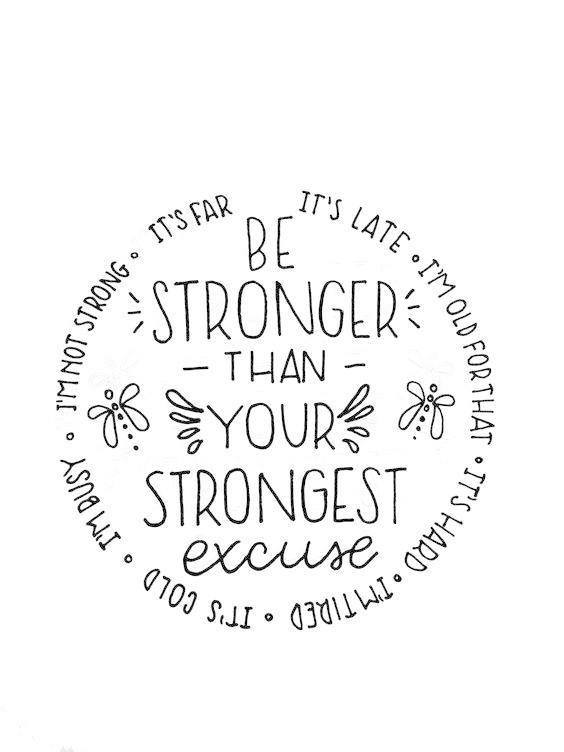 BE
STRONGER
- THAN -
YOUR
STRONGEST
excuse
IT'S LATE
I'M OLD FOR THAT
IT'S HARD
I'M TIRED
IT'S COLD
I'M BUSY
I'M NOT STRONG
IT'S FAR